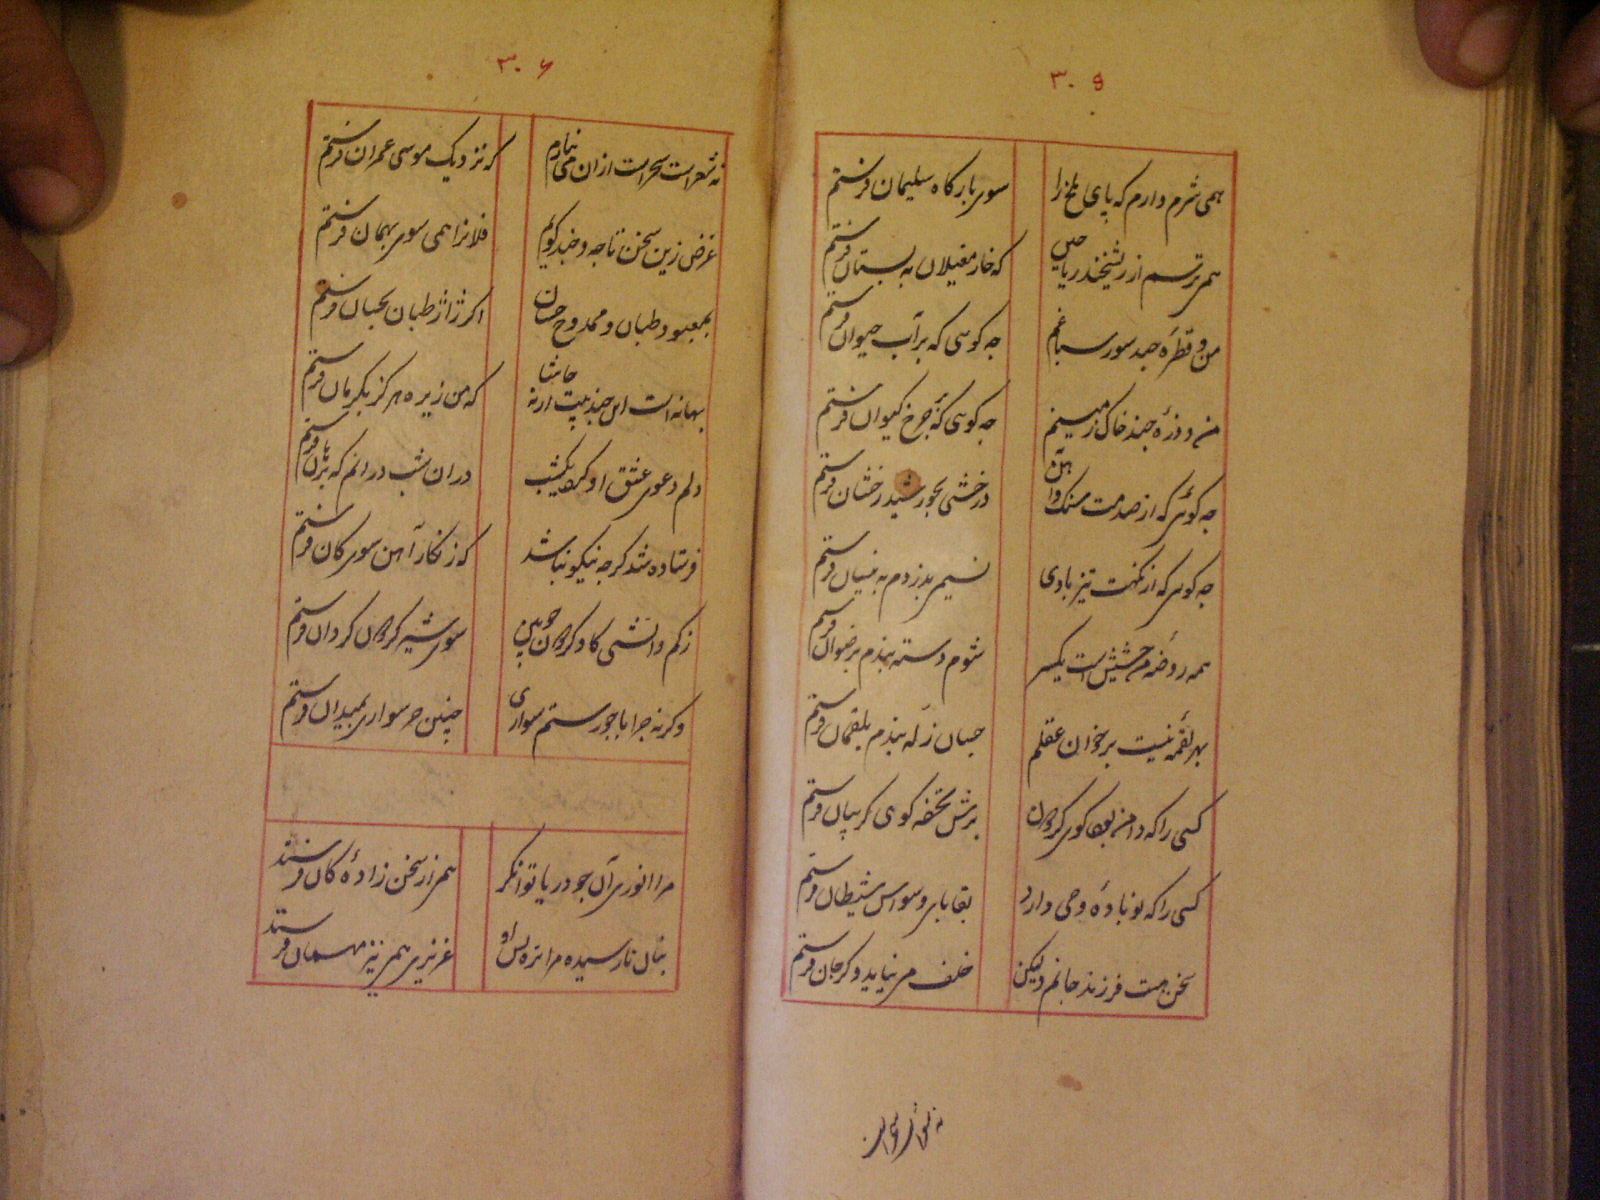 ۳۰۵
همی شرم دارم که پای ملخ را
سوی بارگاه سلیمان فرستم
همی ترسم از ریشخند ریاحین
که خار مغیلان به بستان فرستم
من و قطرهٔ چند سور سباعم
چه گوئی که بر آب حیوان فرستم
من و ذرهٔ چند خاک زمینم
چه گوئی که بر چرخ کیوان فرستم
چه گوئی که از صدمت سنگ و آهن
درخشی بخورشید رخشان فرستم
چه گوئی که از نکهت تیز بادی
نسیمی بدزدم به نیسان فرستم
همه روضهٔ من حشیش است یکسر
شوم دسته بندم برضوان فرستم
بهر لقمهٔ نیست بر خوان عقلم
جسان زله بندم بلقمان فرستم
کسی را که دامن بود کوی گردون
برش تحفه گوی گریبان فرستم
کسی را که نوبادهٔ وحی دارد
بقایای وسواس شیطان فرستم
سخن هست فرزند جانم ولیکن
خلف می نیاید وگر جان فرستم
نه شعراست
۳۰۶
نه شعر است سحر است از آن می نیارم
که نزدیک موسی عمران فرستم
غرض زین سخن تا چه و چند گویم
فلانرا همی سوی بهمان فرستم
بمعبود طیان و ممدوح حسان
اگر ژاژ طیان بحسان فرستم
بهانه است این چند بیت ارنه حاشا
که من زیره هرگز بکرمان فرستم
دلم دعوی عشق او کرد یکشب
در آن شب در آنم که برهان فرستم
فرستاده شد گرچه نیکو نباشد
که زنگار آهن سوی کان فرستم
ز کم دانشی گاو گردون چوبین
سوی شیر گردون گردان فرستم
وگرنه چرا با چو رستم سواری
چنین خر سواری بمیدان فرستم
مرا انوری آن چو دریا توانگر
همی از سخن زادهٔ کان فرستد
بنان نارسیده مرا نزه پس او
عزیزی همی نیز مهمان فرستد